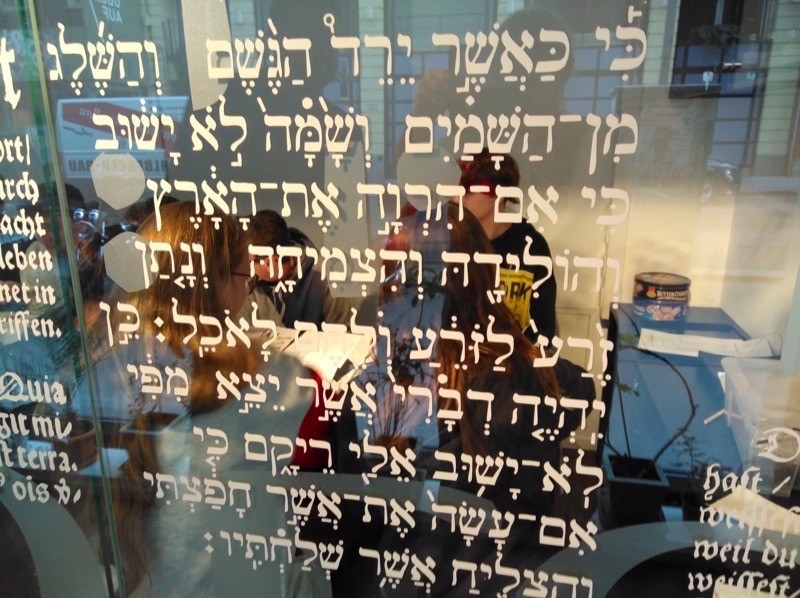 כִּי כַּאֲשֶׁר יֵרֵד הַגֶּשֶׁם וְהַשֶּׁלֶג
מִן־הַשָּׁמַיִם וְשָׁמָּה לֹא יָשׁוּב
כִּי אִם־הִרְוָה אֶת־הָאָרֶץ
וְהוֹלִידָהּ וְהִצְמִיחָהּ וְנָתַן
זֶרַע לַזֹּרֵעַ וְלֶחֶם לָאֹכֵל׃ כֵּן
יִהְיֶה דְבָרִי אֲשֶׁר יֵצֵא מִפִּי
לֹא־יָשׁוּב אֵלַי רֵיקָם כִּי
אִם־עָשָׂה אֶת־אֲשֶׁר חָפַצְתִּי
וְהִצְלִיחַ אֲשֶׁר שְׁלַחְתִּיו׃
t
ort/
arch
acht
leben
net in
riffen.
Quia
git mi/
ft terra.
ois
D
haſt
weil du
weiſſeſt